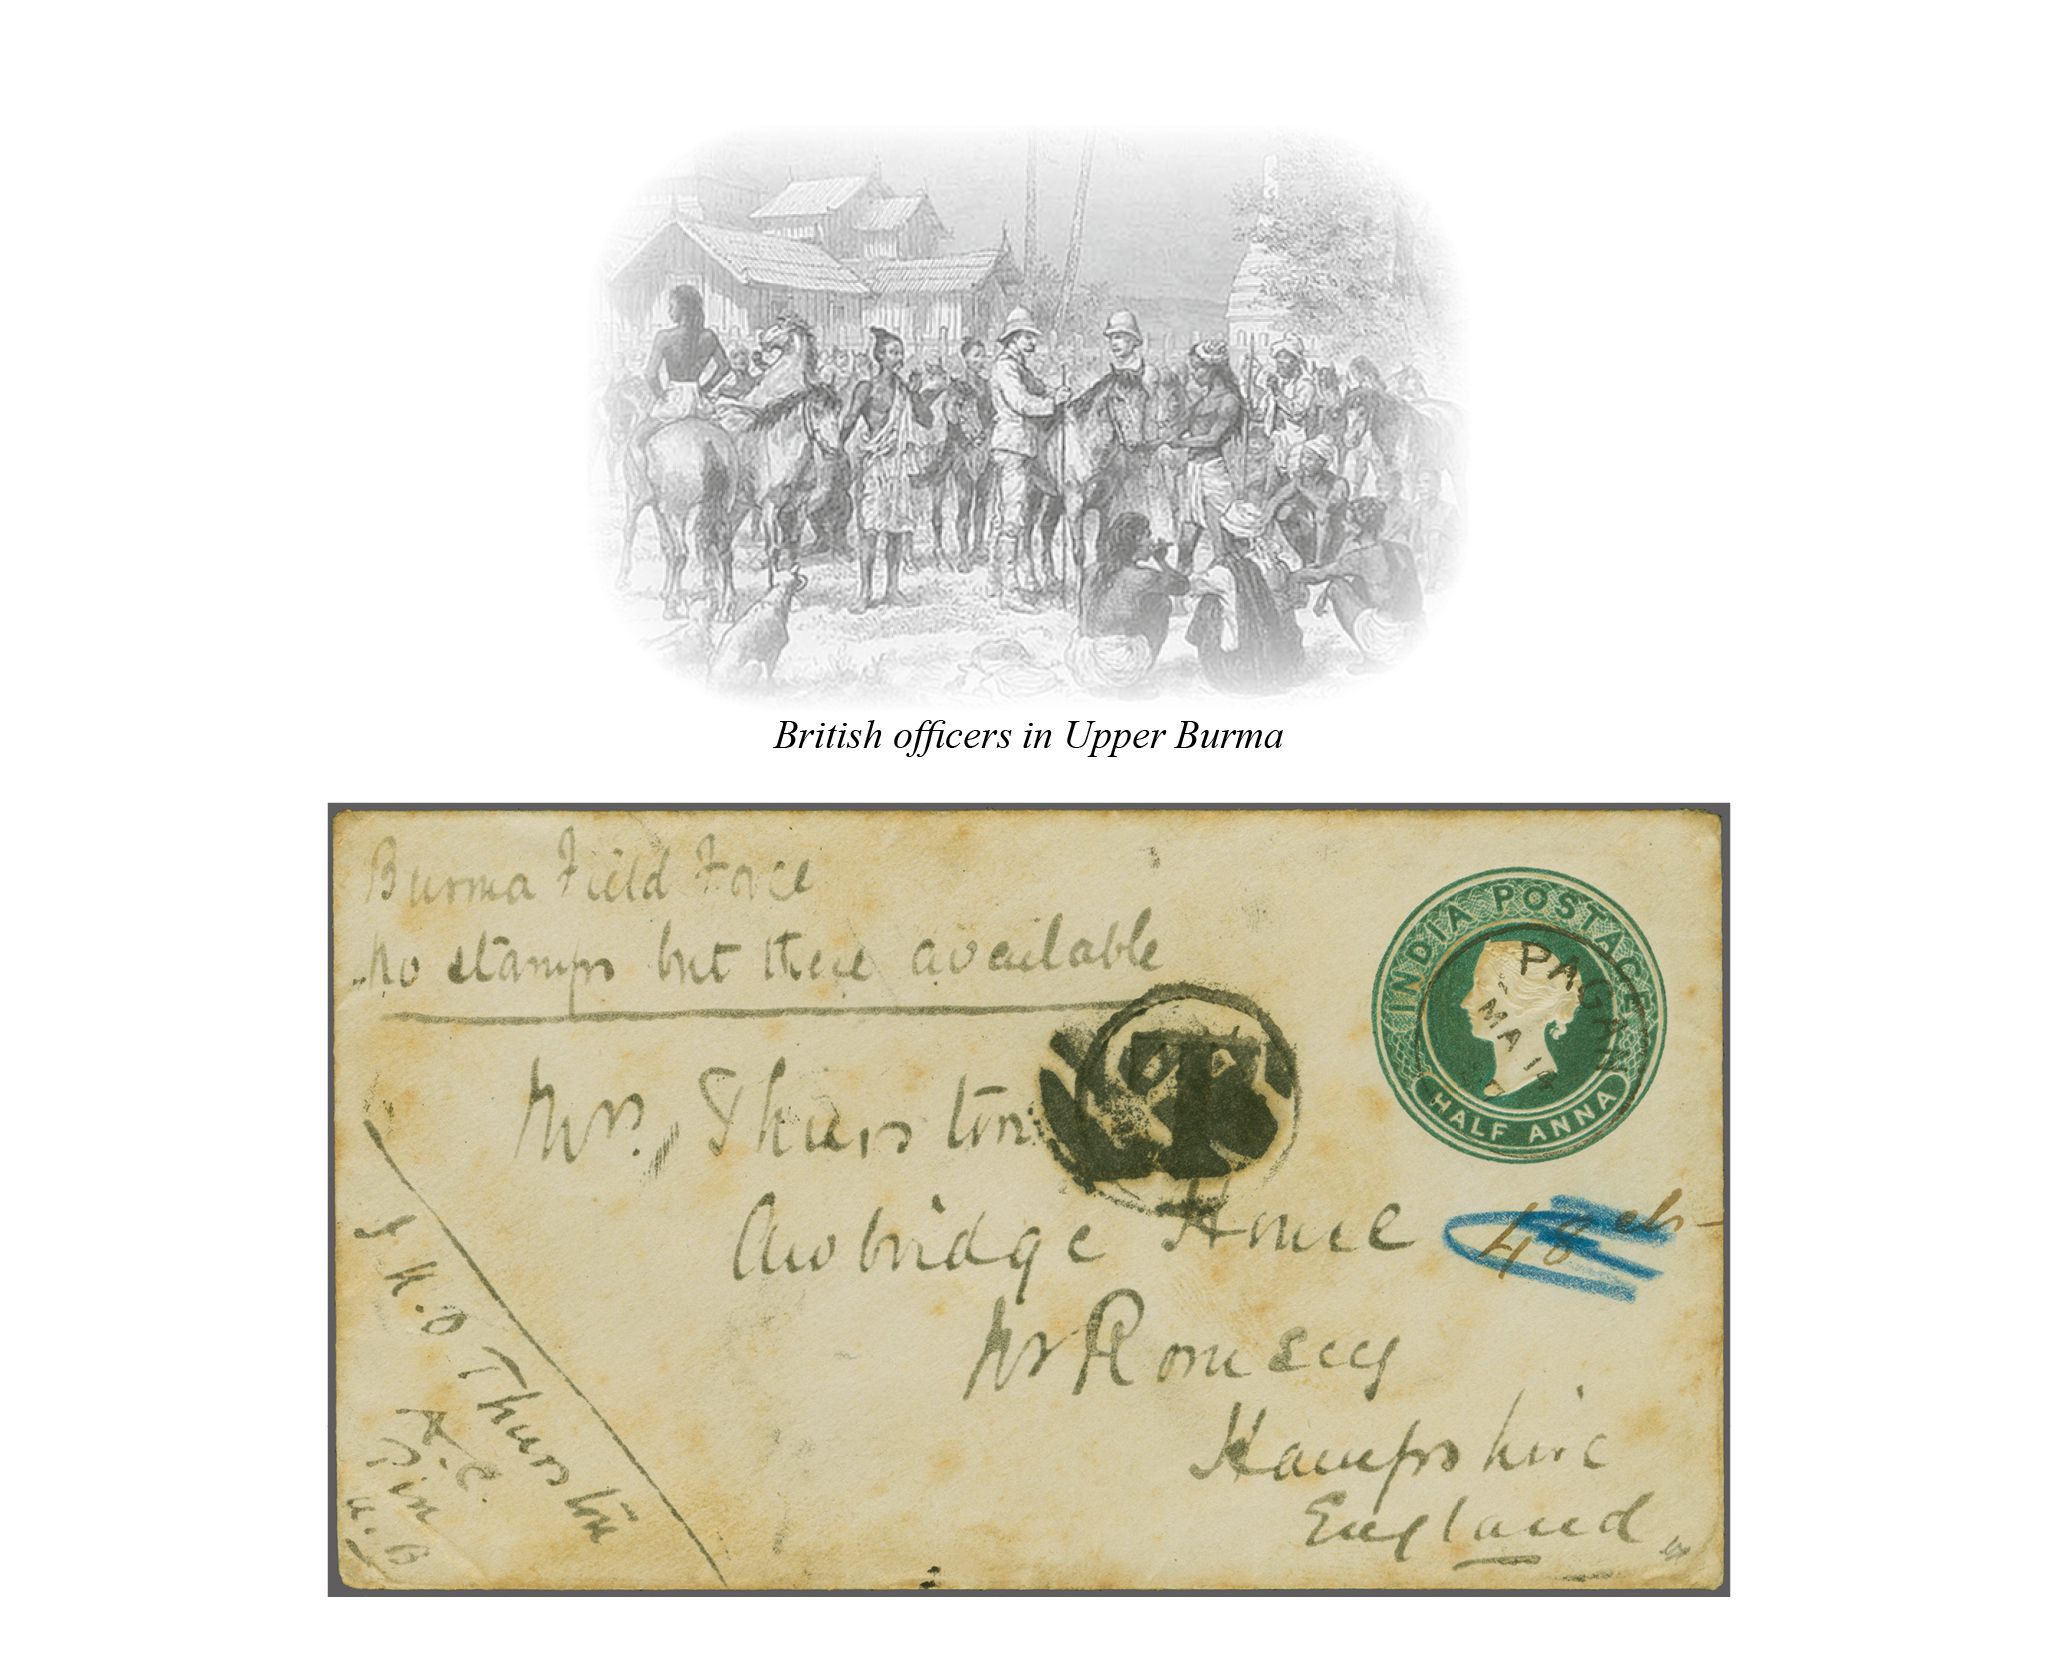 British officers in Upper Burma
Burma Field Force
No stamps but these available
INDIA POSTAGE
HALF ANNA
PAGAN
MA 18
T
Mrs. Thurston
Awbridge House
Nr Romsey
Hampshire
England
48
Thurston